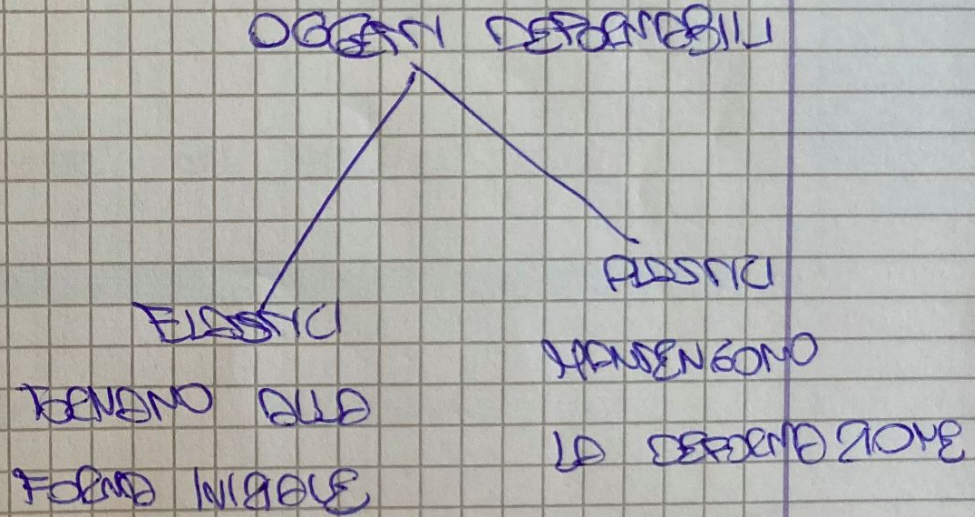 OGGETTI DEFORMABILI
ELASTICI
TORNANO ALLA
FORMA INIZIALE
PLASTICI
MANTENGONO
LA DEFORMAZIONE